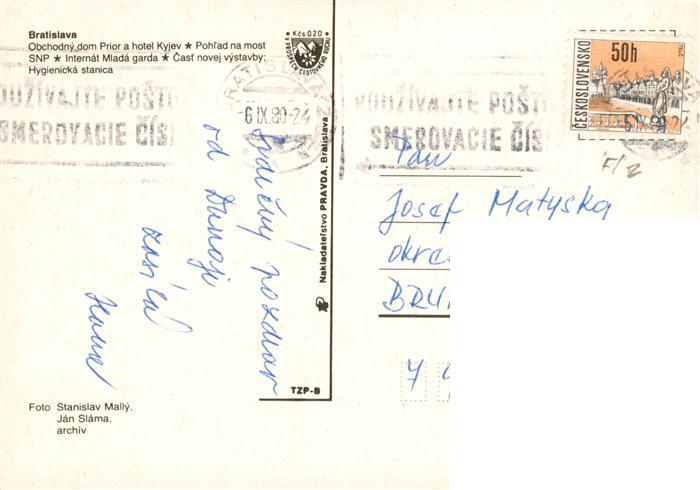 Bratislava
Obchodný dom Prior a hotel Kyjev ★ Pohľad na most
SNP ★ Internát Mladá garda ★ Časť novej výstavby;
Hygienická stanica
Kčs 0,20
V PROSPECH CESTOVNÉHO RUCHU
BRATISLAVA
-6.IX.80-24
POUŽÍVAJTE POŠTO
SMEROVACIE ČÍS
POUŽÍVAJTE POŠT
SMEROVACIE ČÍS
ČESKOSLOVENSKO
50h
TELČ
F/2
Srdečný pozdrav
od Dunaje
zasílá
Pan
Josef Matyska
okre
BRU
7
Nakladateľstvo PRAVDA, Bratislava
TZP-B
Foto Stanislav Mallý,
Ján Sláma,
archív